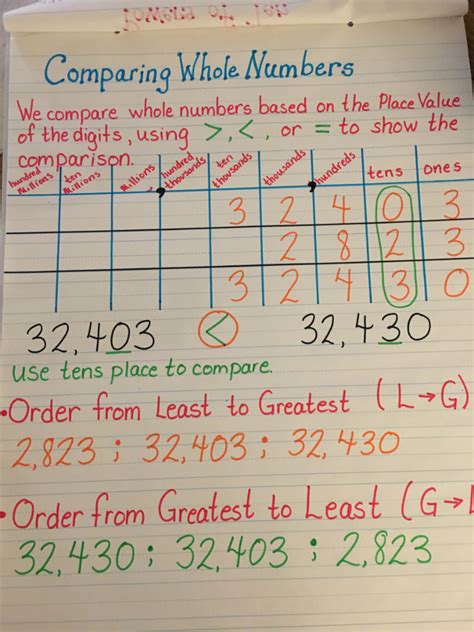 Powers of Ten
Comparing Whole Numbers
We compare whole numbers based on the Place Value
of the digits, using >, <, or = to show the
comparison.
hundred millions ten millions millions , hundred thousands ten thousands thousands , hundreds tens ones
3 2 4 0 3
2 8 2 3
3 2 4 3 0
32,403 < 32,430
use tens place to compare.
•Order from Least to Greatest (L→G)
2,823 ; 32,403 ; 32,430
•Order from Greatest to Least (G→L
32,430 ; 32,403 ; 2,823